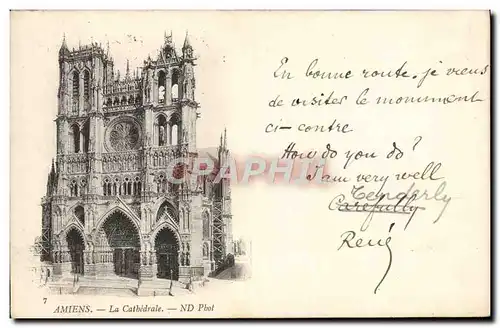 En bonne route. je viens
de visiter le monument
ci-contre
How do you do ?
I am very well
Tenderly
Carefully
René
CPHPHI
7
AMIENS. — La Cathédrale. — ND Phot